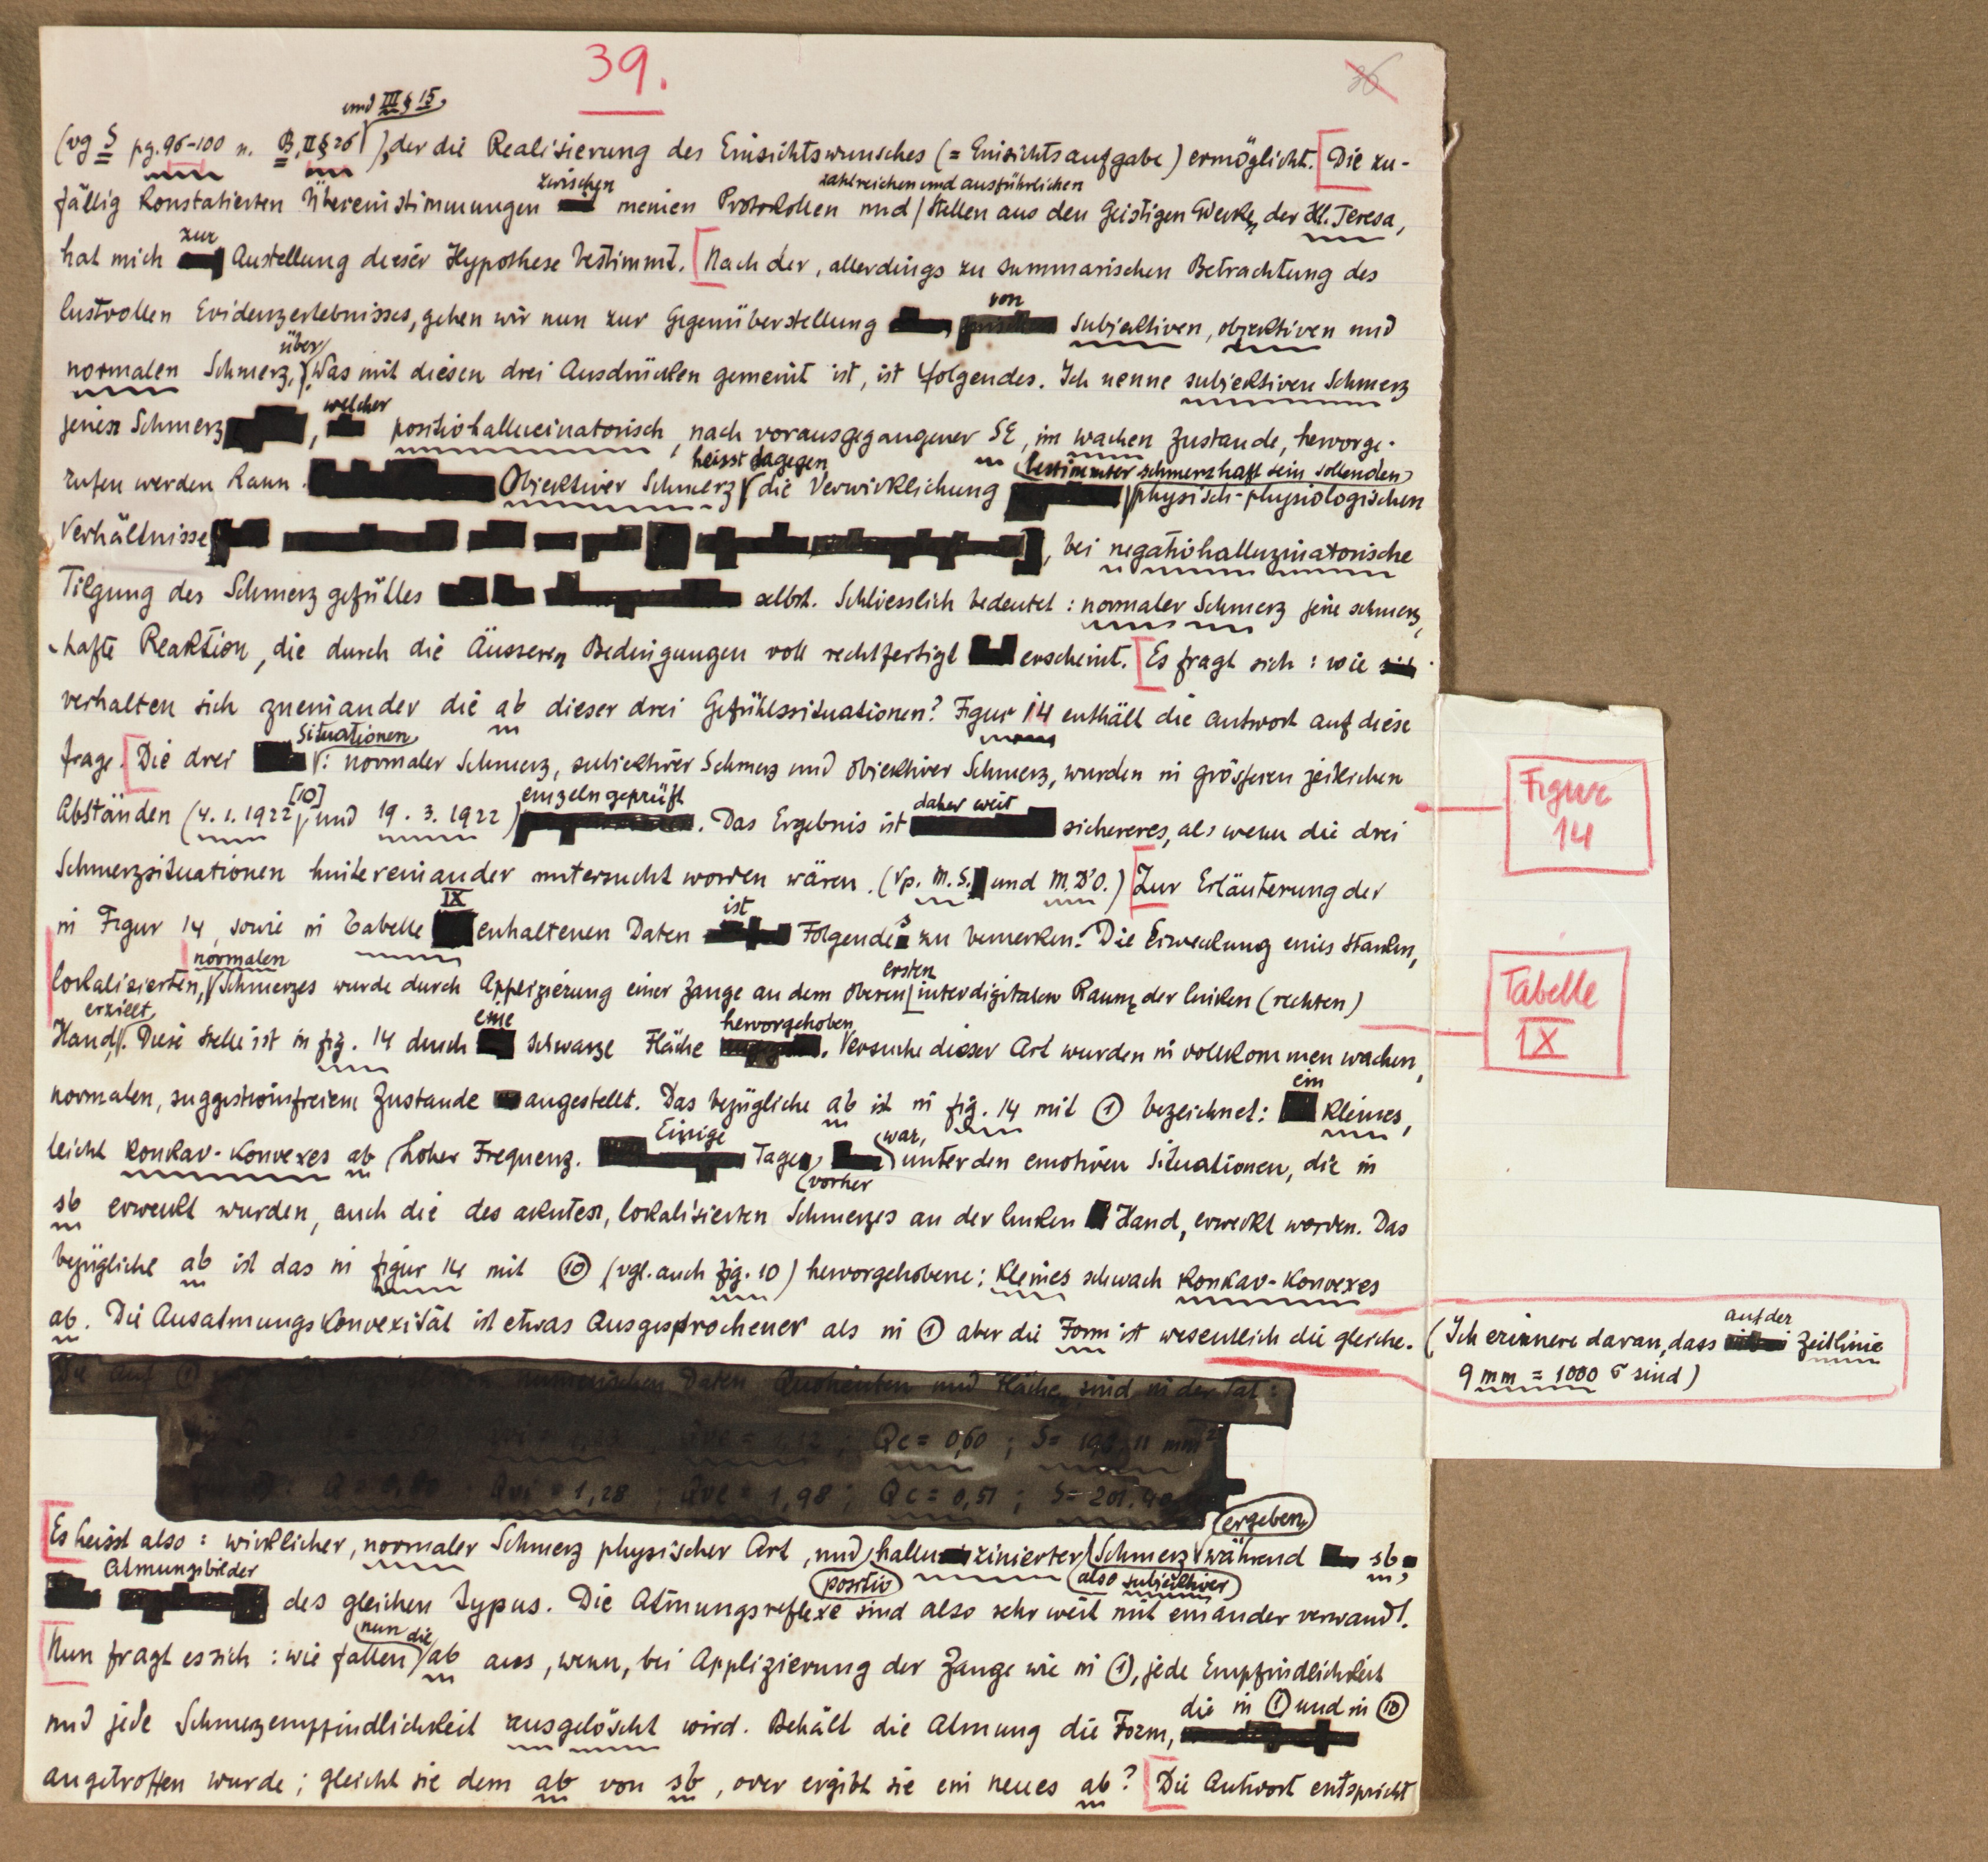 39.
36
und III § 15,
(vg S pg. 96-100 u. B, II § 26), der die Realisierung des Einsichtswunsches (= Einsichtsaufgabe) ermöglicht. [Die zu-
zwischen zahlreichen und ausführlichen
fällig konstatierten Übereinstimmungen meinen Protokollen und Stellen aus den Geistigen Werken der Hl. Teresa,
zur
hat mich Austellung dieser Hypothese bestimmt. [Nach der, allerdings zu summarischen Betrachtung des
von
lustvollen Evidenzerlebnisses, gehen wir nun zur Gegenüberstellung subjektiven, objektiven und
über
normalen Schmerz, Was mit diesen drei Ausdrücken gemeint ist, ist folgendes. Ich nenne subjektiven Schmerz
welcher
jenen Schmerz, positivhallucinatorisch, nach vorausgegangener SE, im wachen Zustande, hervorge-
heisst dagegen bestimmter schmerzhaft sein sollenden
rufen werden kann. Objektiver Schmerz die Verwirklichung physisch-physiologischen
Verhältnisse, bei negativhalluzinatorische
Tilgung des Schmerzgefülles selbst. Schliesslich bedeutet: normaler Schmerz jene schmerz-
hafte Reaktion, die durch die Äusseren Bedingungen voll rechtfertigt erscheint. [Es fragt sich: wie
verhalten sich zueinander die ab dieser drei Gefühlssituationen? Figur 14 enthält die antwort auf diese
Situationen
frage. [Die drei : normaler Schmerz, subjektiver Schmerz und objektiver Schmerz, wurden in grösseren zeitlichen
[10] einzeln geprüft daher weit
Abständen (4. 1. 1922, und 19. 3. 1922). Das Ergebnis ist sichereres, als wenn die drei
Schmerzsituationen hintereinander untersucht worden wären. (Vp. M. S. und M. D'O.) [Zur Erläuterung der
IX ist
in Figur 14, sowie in Tabelle enhaltenen Daten Folgendes zu bemerken: Die Erweckung eines starken,
normalen ersten
lokalisierten, Schmerzes wurde durch Applizierung einer Zange an dem oberen interdigitalen Raum der linken (rechten)
erzielt, eine hervorgehoben
Hand. Diese stelle ist in fig. 14 durch schwarze Fläche. Versuche dieser Art wurden in vollkommen wachen,
ein
normalen, suggestionsfreiem Zustande angestellt. Das bezügliche ab ist in fig. 14 mit ① bezeichnet: kleines,
Einige war,
leicht konkav-konvexes ab hoher Frequenz. Tage unter den emotiven Situationen, die in
vorher
sb erweckt wurden, auch die des akuten, lokalisierten Schmerzes an der linken Hand, erweckt worden. Das
bezügliche ab ist das in figur 14 mit ⑩ (vgl. auch fig. 10) hervorgehobene: kleines schwach konkav-konvexes
ab. Die Ausatmungskonvexität ist etwas Ausgesprochener als in ① aber die Form ist wesentlich die gleiche.
Die auf ① numerischen Daten Quotienten und Fläche, sind in der Tat:
Qc = 0,60; S =
Qvi = 1,28; Qve = 1,98; Qc = 0,51; S = 201,
ergeben,
Es heisst also: wirklicher, normaler Schmerz physischer Art, und halluzinierter Schmerz während sb,
Atmungsbilder positiv also subjektiver
des gleichen Typus. Die Atmungsreflexe sind also sehr weit mit einander verwandt.
nun die
[Nun fragt es sich: wie fallen ab aus, wenn, bei Applizierung der Zange wie in ①, jede Empfindlichkeit
die in ① und in ⑩
und jede Schmerzempfindlichkeit ausgelöscht wird. Behält die Atmung die Form,
angetroffen wurde; gleicht sie dem ab von sb, over ergibt sie ein neues ab? [Die Antwort entspricht
Figur
14
Tabelle
IX
auf der
(Ich erinnere daran, dass Zeitlinie
9 mm = 1000 σ sind)